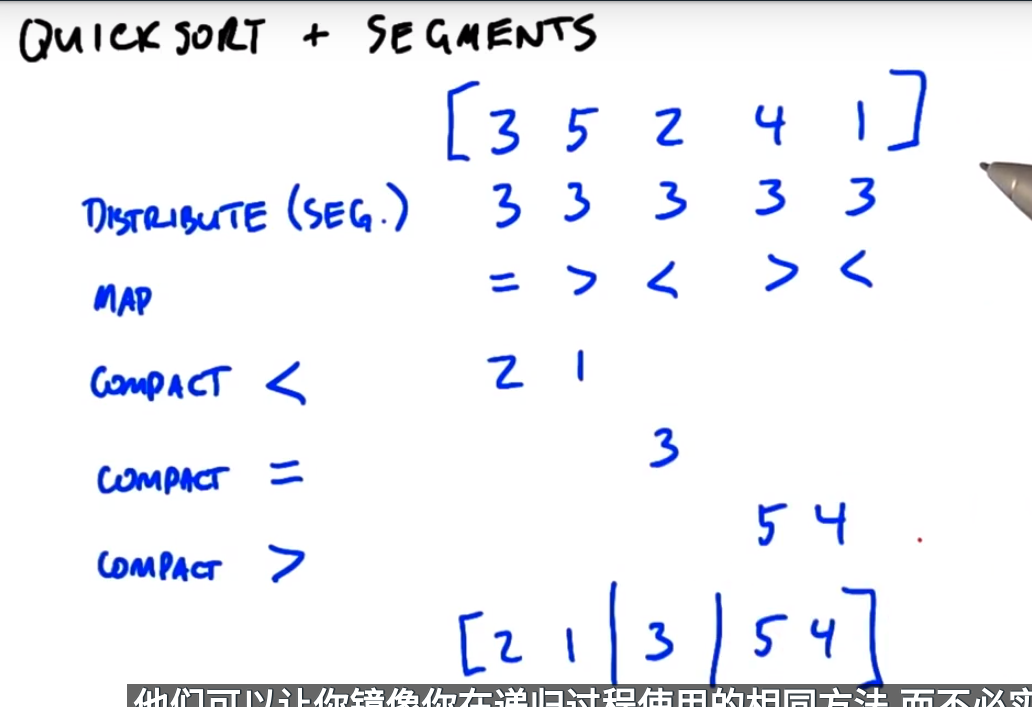 QUICKSORT + SEGMENTS
[3 5 2 4 1]
DISTRIBUTE (SEG.) 3 3 3 3 3
MAP = > < > <
COMPACT < 2 1
COMPACT = 3
COMPACT > 5 4
[2 1 | 3 | 5 4]
他们可以让你镜像你在递归过程使用的相同方法 而不必实